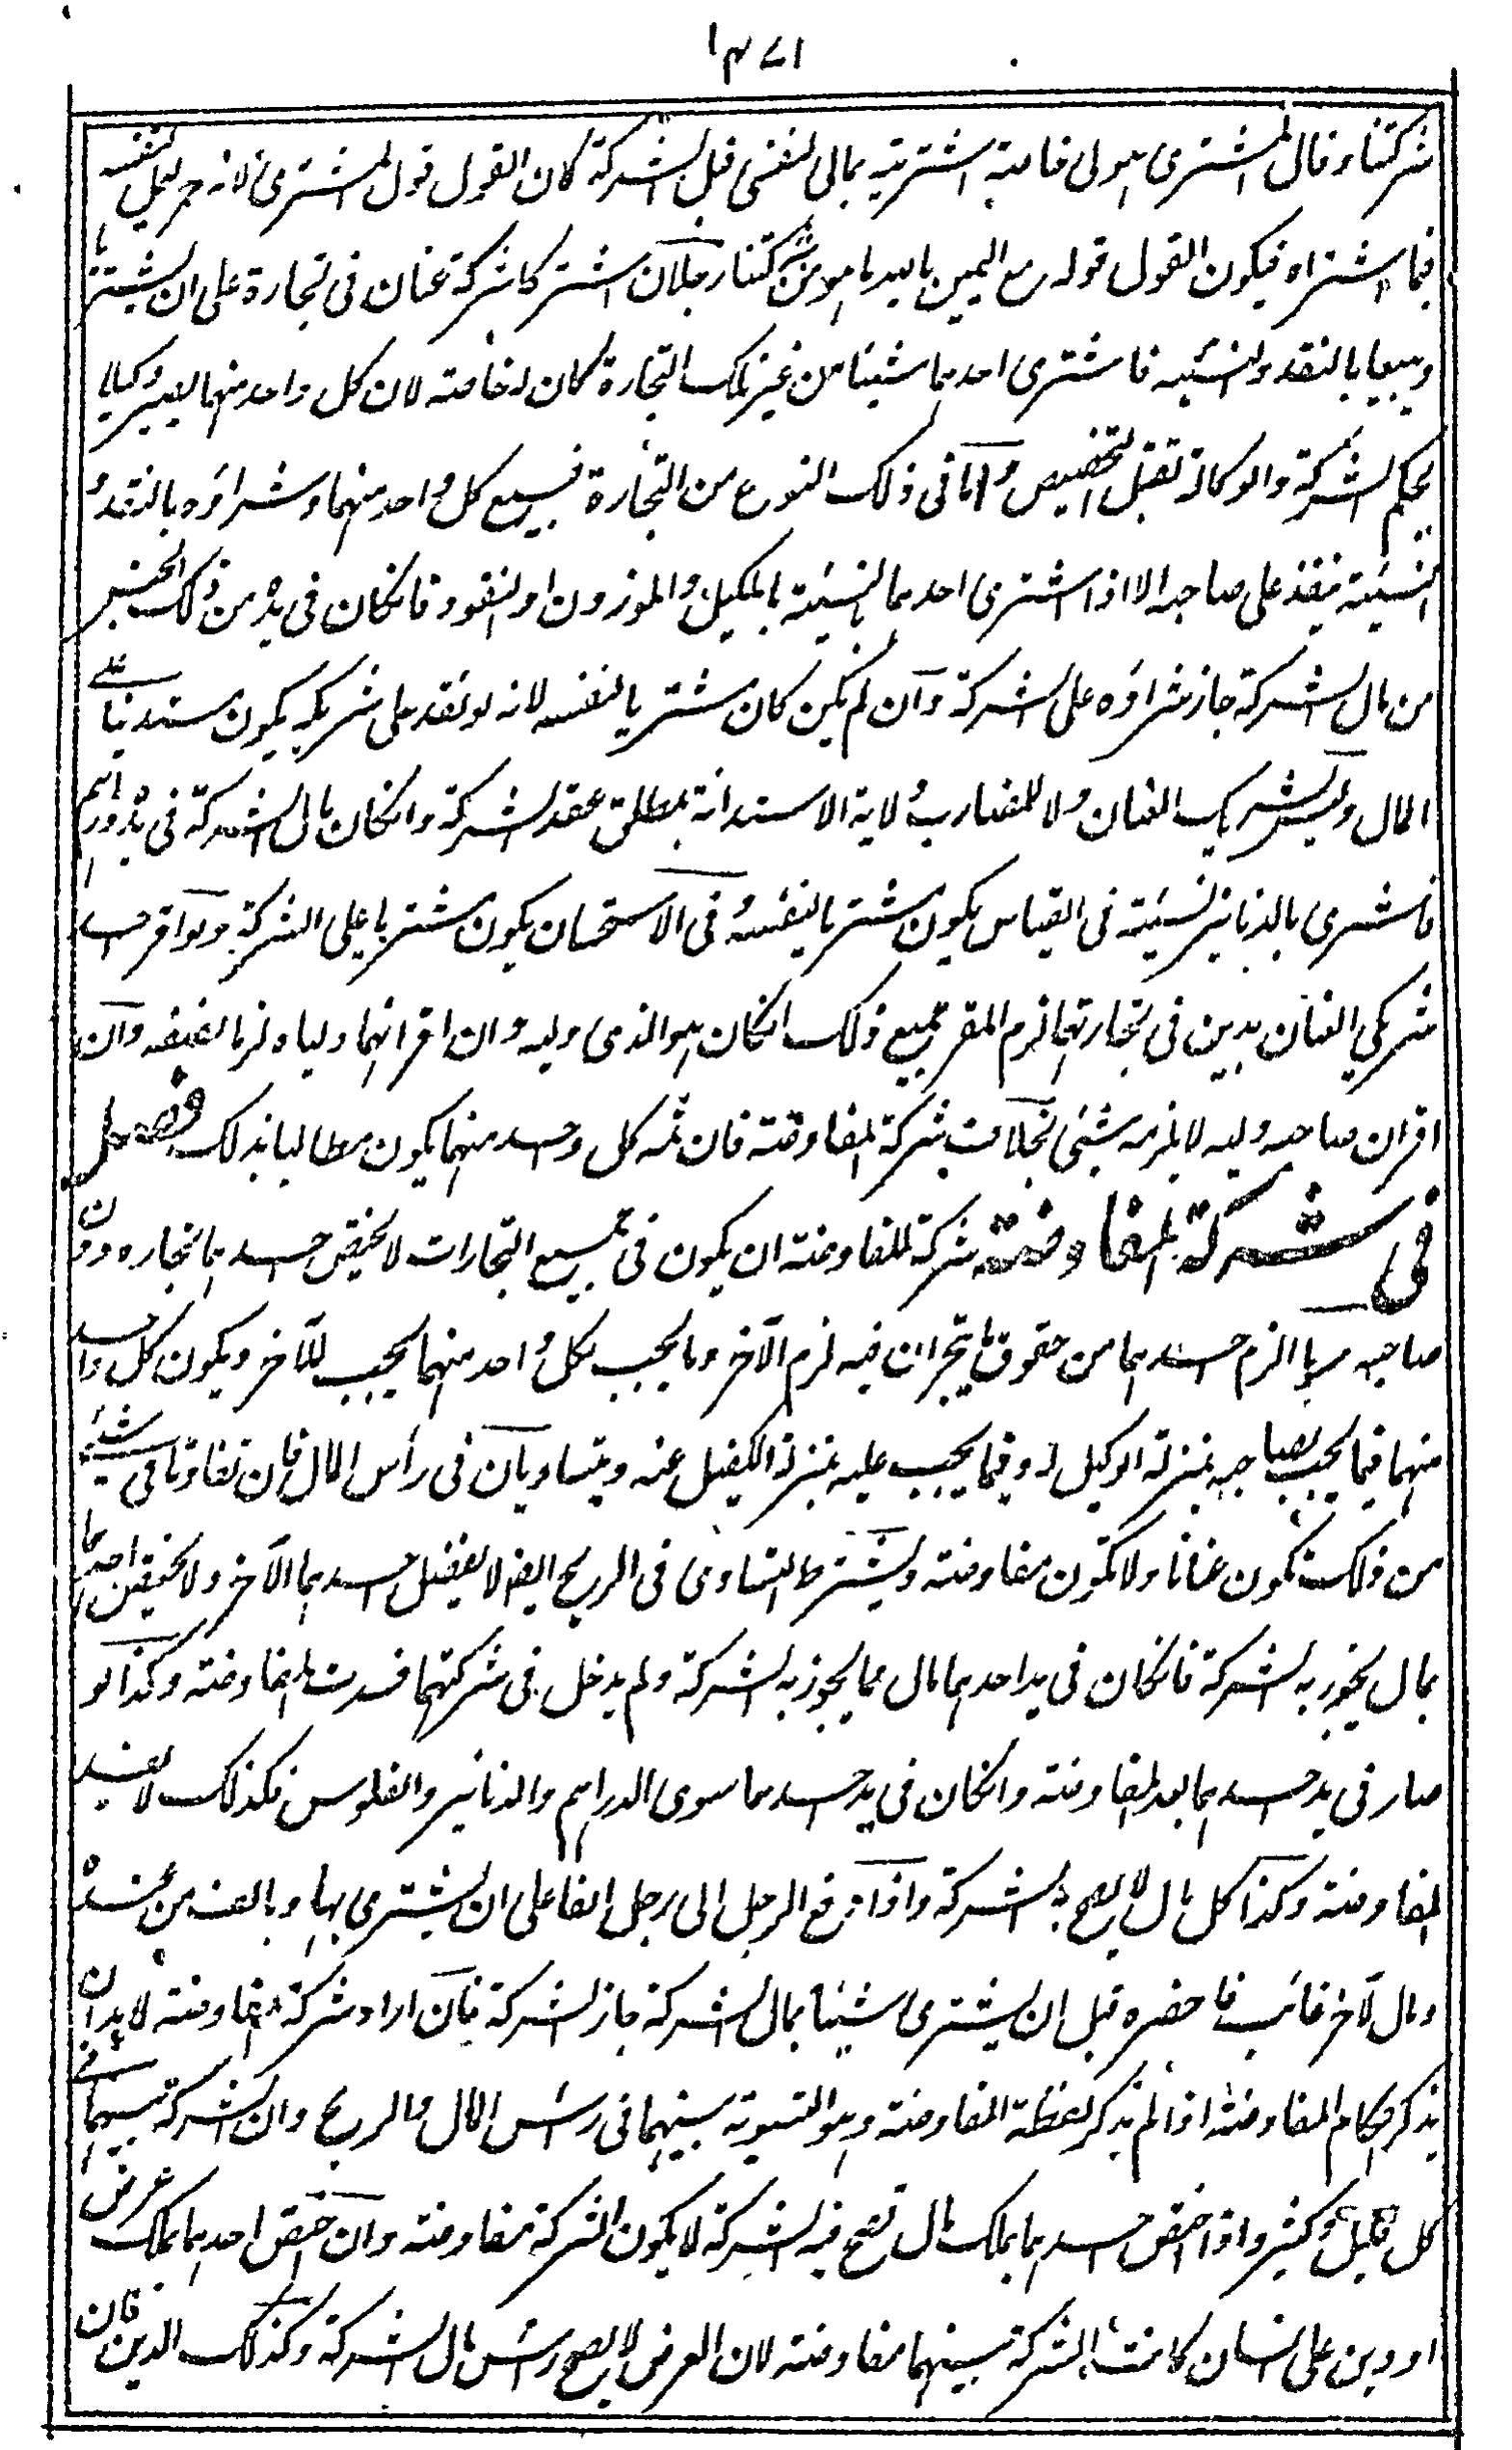 ١٣٧١
شركتنا وقال المشترى هو لى خاصة اشتريته بمالى لنفسى قبل الشركة كان القول قول المشترى لانه حر يعمل لنفسه
فيما اشتراه فيكون القول قوله مع اليمين بالله ما هو من شركتنا رجلان اشتركا شركة عنان فى تجارة على ان يشتريا
ويبيعا بالنقد والنسئية فاشترى احدهما شيئا من غير تلك التجارة كان له خاصة لان كل واحد منهما يصير وكيلا
بحكم الشركة والوكالة تقبل التخصيص واما فى ذلك النوع من التجارة فبيع كل واحد منهما وشراؤه بالنقد و
النسئية ينفذ على صاحبه الا اذا اشترى احدهما بالنسئية بالمكيل والموزون او النقود فانكان فى يده من ذلك الجنس
من مال الشركة جاز شراؤه على الشركة وان لم يكن كان مشتريا لنفسه لانه لو نفذ على شريكه يكون مستدينا على
المال وليس لشريك العنان ولا للمضارب ولاية الاستدانة بمطلق عقد الشركة وانكان مال الشركة فى يده دراهم
فاشترى بالدنانير نسئية فى القياس يكون مشتريا لنفسه وفى الاستحسان يكون مشتريا على الشركة ولو اقر احد
شريكي العنان بدين فى تجارتهما لزم المقر جميع ذلك انكان هو الذى وليه وان اقر انهما ولياه لزمه نصفه وان
اقر ان صاحبه وليه لا يلزمه شئ بخلاف شركة المفاوضة فان ثمه كل واحد منهما يكون مطالبا بذلك فصل
فى شركة المفاوضة شركة المفاوضة ان يكون فى جميع التجارات لا يختص احدهما بتجارة دون
صاحبه وما لزم احدهما من حقوق ما يتجران فيه لزم الآخر وما يجب لكل واحد منهما يجب للآخر ويكون كل واحد
منهما فيما يجب لصاحبه بمنزلة الوكيل له وفيما يجب عليه بمنزلة الكفيل عنه ويتساويان فى رأس المال فان تفاوتا فى شئ
من ذلك تكون عنانا ولا تكون مفاوضة ويشترط التساوى فى الربح ايضا لا يفضل احدهما الآخر ولا يختص احدهما
بمال يجوز به الشركة فانكان فى يد احدهما مال مما يجوز به الشركة ولم يدخل فى شركتهما فسدت المفاوضة وكذا لو
صار فى يد احدهما بعد المفاوضة وانكان فى يد احدهما سوى الدراهم والدنانير والفلوس فكذلك لا يفسد
المفاوضة وكذا كل مال لا يصح به الشركة واذا دفع الرجل الى رجل الفا على ان يشترى بها وبالف من عنده
ومال لآخر غائب فاحضره قبل ان يشترى شيئا بمال الشركة جاز الشركة فان اراد شركة المفاوضة لا بد ان
يذكر احكام المفاوضة اذا لم يذكر لفظة المفاوضة وهو التسوية بينهما فى رأس المال والربح وان الشركة بينهما فى
كل قليل وكثير واذا اختص احدهما بملك مال تصح فيه الشركة لا يكون الشركة مفاوضة وان اختص احدهما بملك عرض
او دين على انسان كانت الشركة بينهما مفاوضة لان العرض لا يصح رأس مال الشركة وكذلك الدين فان